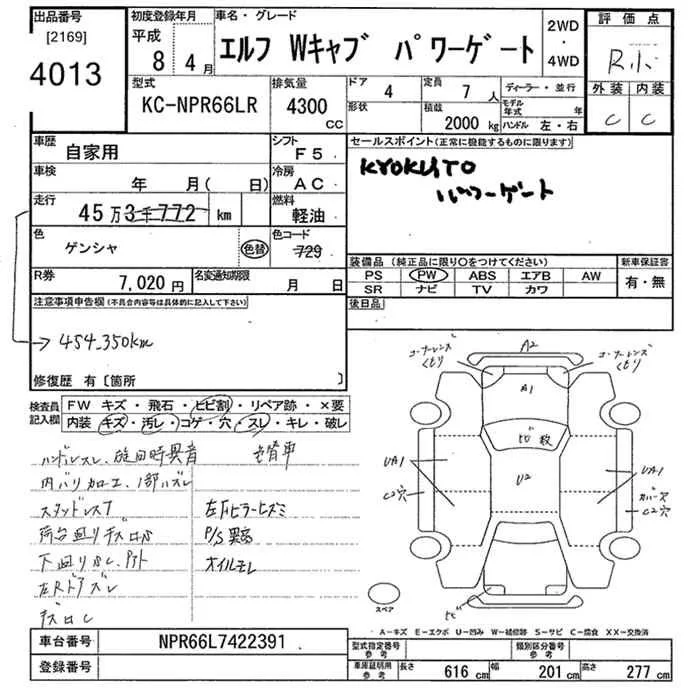 出品番号 初度登録年月 車名・グレード 2WD・4WD 評価点
[2169] 平成 エルフ Wキャブ パワーゲート
4013 8年 4月 R
型式 排気量 ドア 4 定員 7人 ディーラー・並行 外装 内装
KC-NPR66LR 4300cc 形状 積載 2000kg モデル年式 年 C C
ハンドル 左・右
車歴 自家用 シフト F5 セールスポイント(正常に機能するものに限ります)
車検 年 月( 日) 冷房 AC KYOKUTO
走行 45万3千772 km 燃料 軽油 パワーゲート
色 ゲンシャ 色替 色コード 729
装備品(純正品に限り○をつけてください) 新車保証書
R券 7,020円 名変通知期限 月 日 PS PW ABS エアB AW 有・無
SR ナビ TV カワ
注意事項申告欄(不具合内容等は具体的に記入して下さい) 後日品
→454,350km
修復歴 有[箇所 ]
検査員記入欄 FW キズ・飛石・ヒビ割・リペア跡・×要
内装 キズ・汚レ・コゲ・穴・スレ・キレ・破レ
コーナーレンズ A2 コーナーレンズ
くもり くもり
A1
ヒビ 枚
UA1 U2 UA1
C2穴 カバー穴
C2穴
ハンドルスレ
スタッドレスT 左Fピラーヒズミ
P/S異音
オイルモレ
左Rドアズレ
スペア ヒビ
A-キズ E-エクボ U-凹み W-補修跡 S-サビ C-腐食 XX-交換済
車台番号 NPR66L7422391 型式指定番号参考 類別区分番号参考
登録番号 車庫証明用参考 長さ 616cm 幅 201cm 高さ 277cm